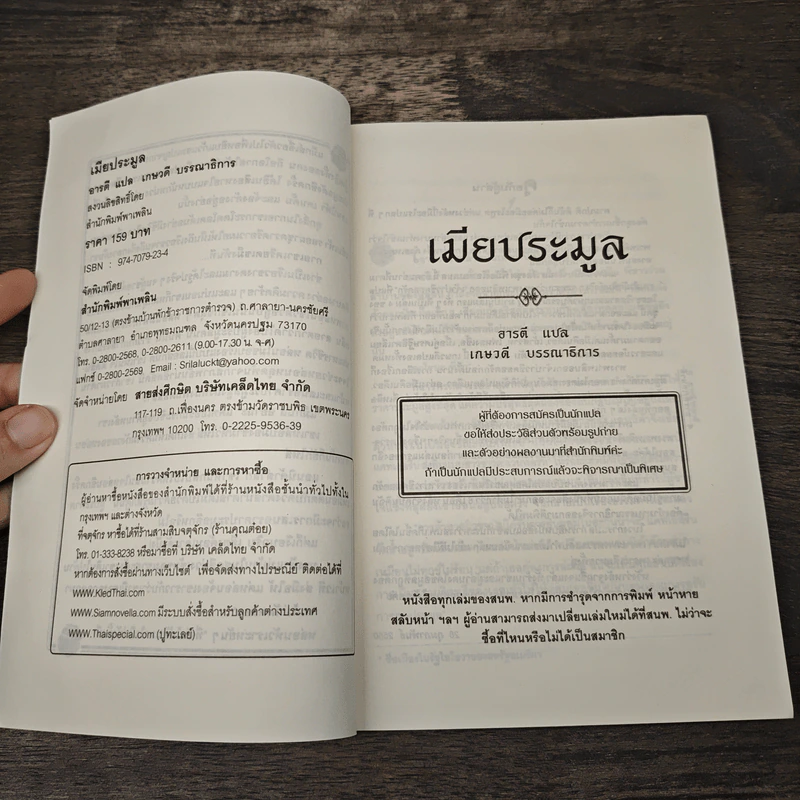 เมียประมูล
อารตี แปล เกษวดี บรรณาธิการ
สงวนลิขสิทธิ์โดย
สำนักพิมพ์พาเพลิน
ราคา 159 บาท
ISBN : 974-7079-23-4
จัดพิมพ์โดย
สำนักพิมพ์พาเพลิน
50/12-13 (ตรงข้ามบ้านพักข้าราชการตำรวจ) ถ.ศาลายา-นครชัยศรี
ตำบลศาลายา อำเภอพุทธมณฑล จังหวัดนครปฐม 73170
โทร. 0-2800-2568, 0-2800-2611 (9.00-17.30 น. จ-ศ)
แฟกซ์ 0-2800-2569 Email : Srilaluckt@yahoo.com
จัดจำหน่ายโดย สายส่งศึกษิต บริษัทเคล็ดไทย จำกัด
117-119 ถ.เฟื่องนคร ตรงข้ามวัดราชบพิธ เขตพระนคร
กรุงเทพฯ 10200 โทร. 0-2225-9536-39
การวางจำหน่าย และการหาซื้อ
ผู้อ่านหาซื้อหนังสือของสำนักพิมพ์ได้ที่ร้านหนังสือชั้นนำทั่วไปทั้งใน
กรุงเทพฯ และต่างจังหวัด
ที่จตุจักร หาซื้อได้ที่ร้านสามสิบจตุจักร (ร้านคุณต๋อย)
โทร. 01-333-8238 หรือมาซื้อที่ บริษัท เคล็ดไทย จำกัด
หากต้องการสั่งซื้อผ่านทางเว็บไซต์ เพื่อจัดส่งทางไปรษณีย์ ติดต่อที่
WWW.KledThai.com
WWW.Siamnovella.com มีระบบสั่งซื้อสำหรับลูกค้าต่างประเทศ
WWW.Thaispecial.com (ปูทะเลย์)
เมียประมูล
อารตี แปล
เกษวดี บรรณาธิการ
ผู้ที่ต้องการสมัครเป็นนักแปล
ขอให้ส่งประวัติส่วนตัวพร้อมรูปถ่าย
และตัวอย่างผลงานมาที่สำนักพิมพ์ค่ะ
ถ้าเป็นนักแปลมีประสบการณ์แล้วจะพิจารณาเป็นพิเศษ
หนังสือทุกเล่มของสนพ. หากมีการชำรุดจากการพิมพ์ หน้าหาย
สลับหน้า ฯลฯ ผู้อ่านสามารถส่งมาเปลี่ยนเล่มใหม่ได้ที่สนพ. ไม่ว่าจะ
ซื้อที่ไหนหรือไม่ได้เป็นสมาชิก